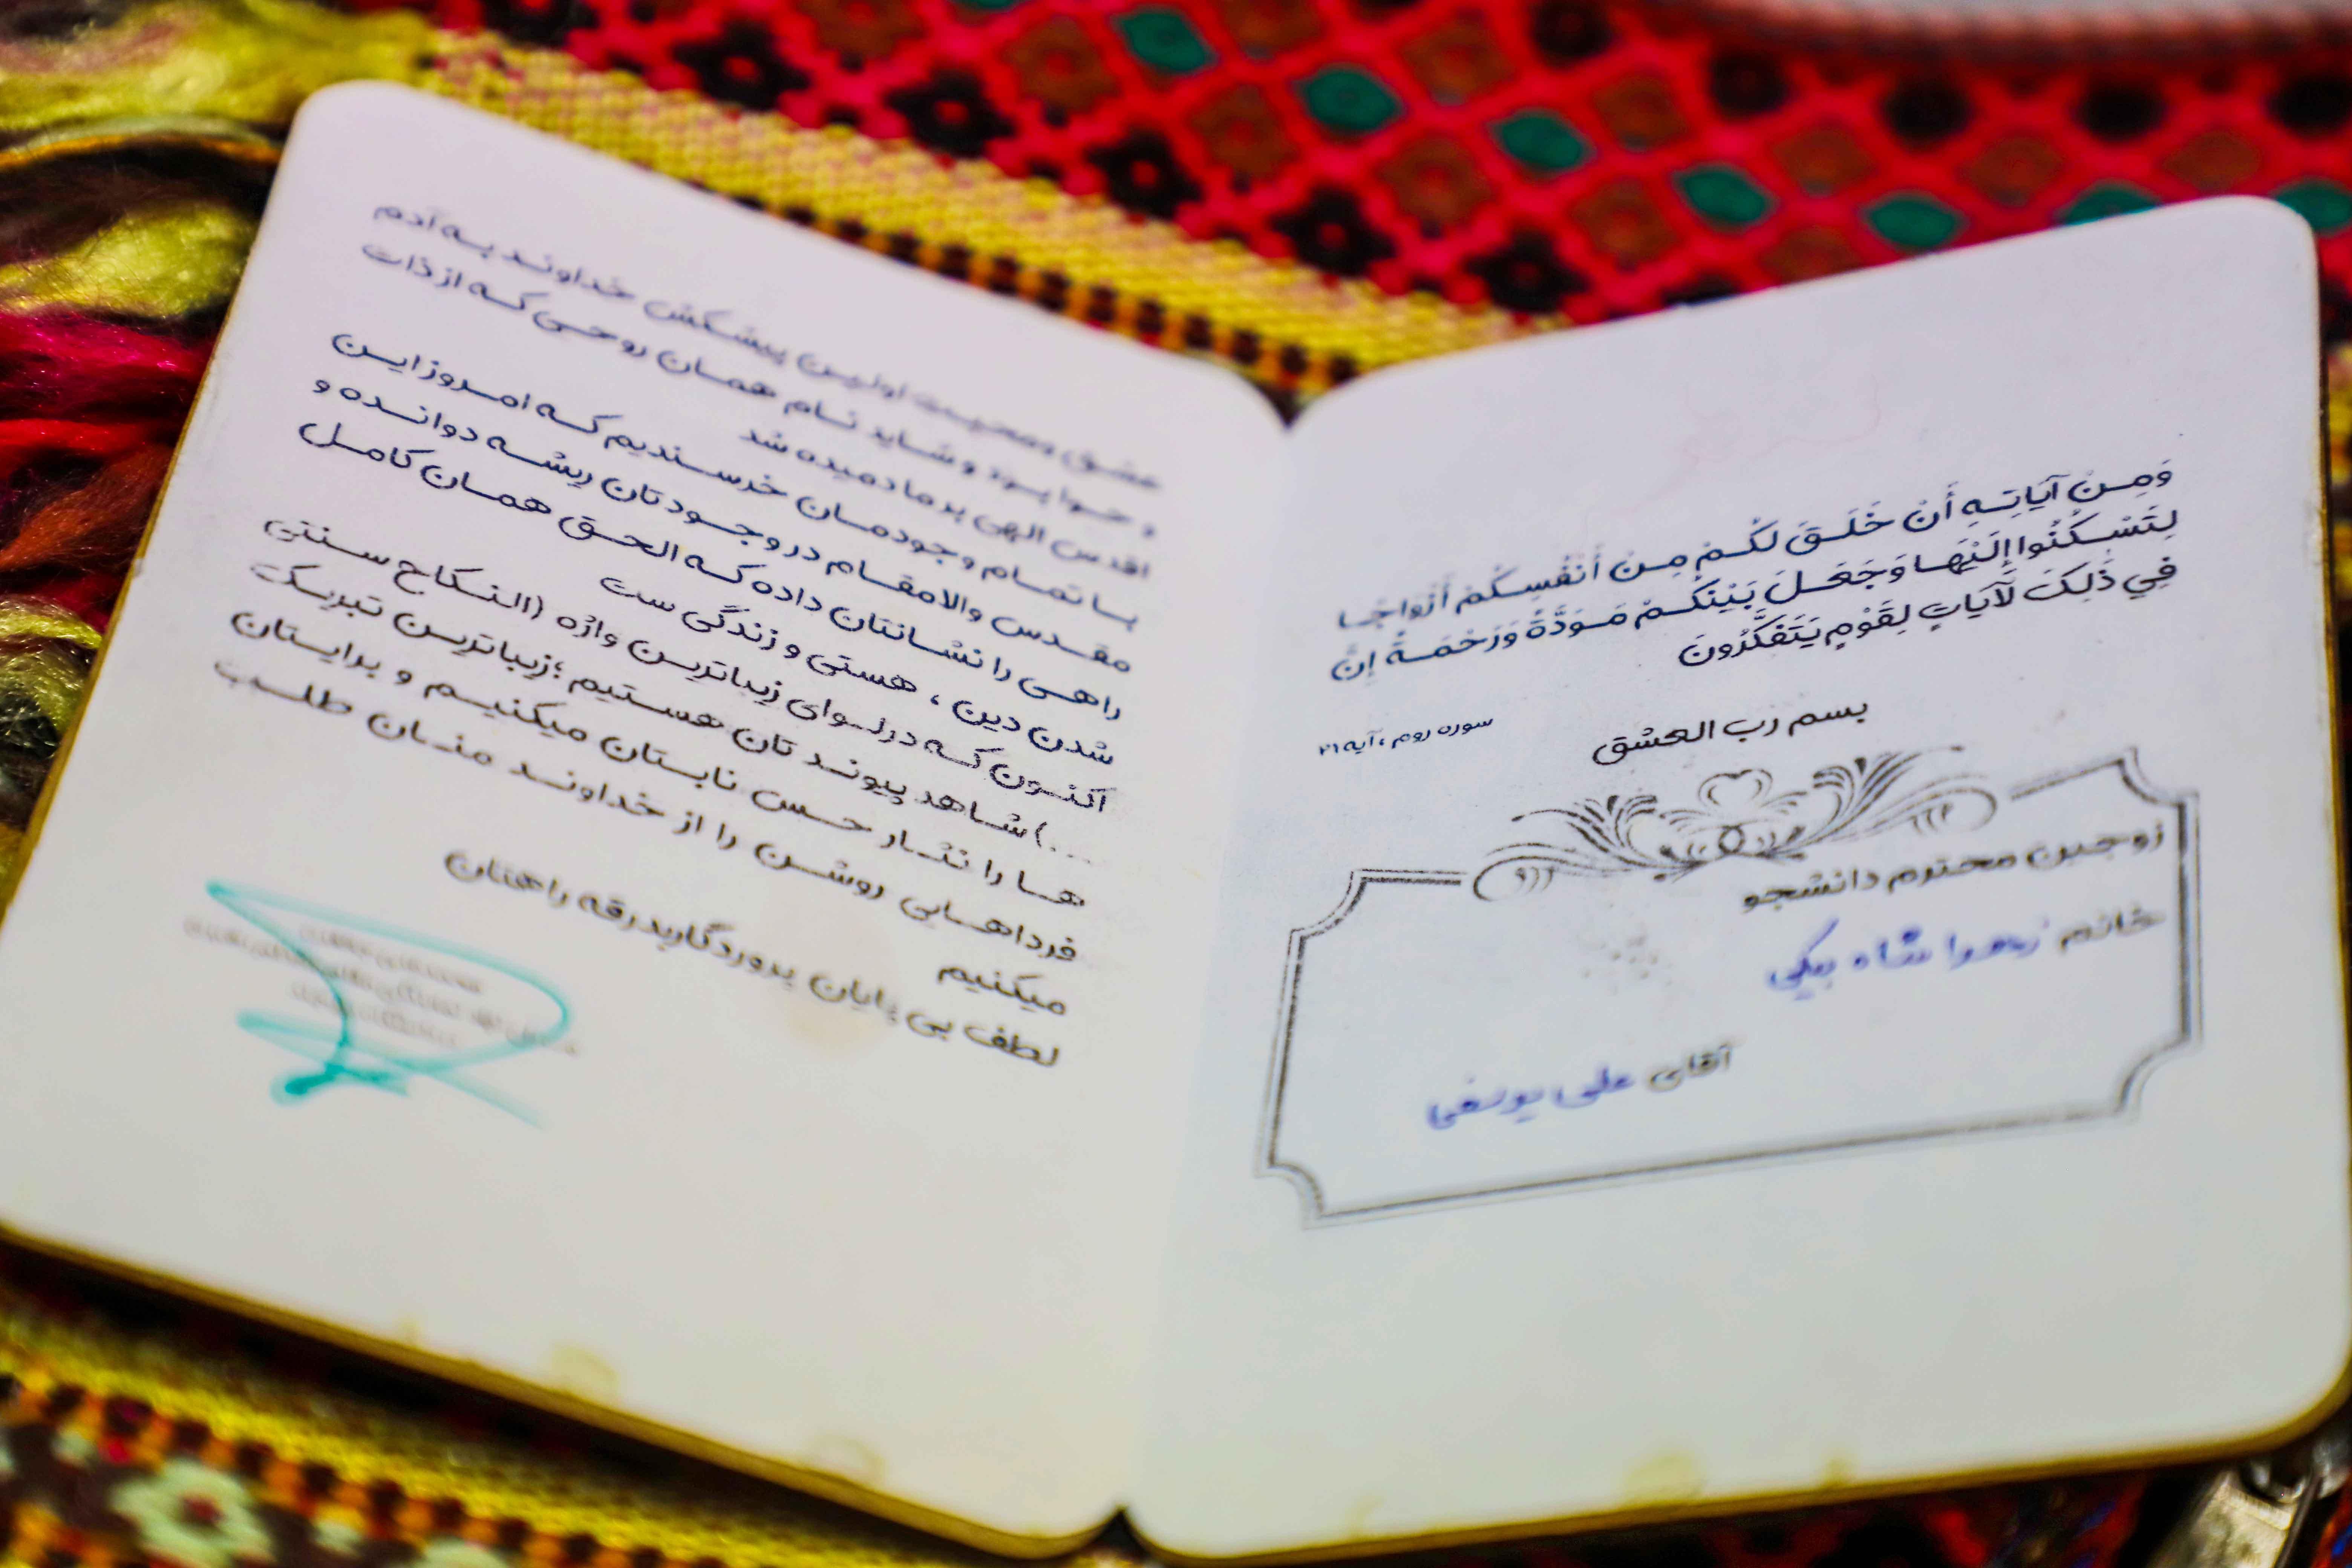 وَمِنْ آيَاتِهِ أَنْ خَلَقَ لَكُمْ مِنْ أَنْفُسِكُمْ أَزْوَاجًا
لِتَسْكُنُوا إِلَيْهَا وَجَعَلَ بَيْنَكُمْ مَوَدَّةً وَرَحْمَةً إِنَّ
فِي ذَٰلِكَ لَآيَاتٍ لِقَوْمٍ يَتَفَكَّرُونَ
سوره روم ، آیه ۲۱
بسم رب العشق
زوجین محترم دانشجو
خانم زهرا شاه بیگی
آقای علی یوسفی
عشق ومحبت اولین پیشکش خداوند به آدم
و حوا بود و شاید نام همان روحی که از ذات
اقدس الهی بر ما دمیده شد
با تمام وجودمان خرسندیم که امروز این
مقدس والامقام در وجودتان ریشه دوانده و
راهی را نشانتان داده که الحق همان کامل
شدن دین ، هستی و زندگی ست
اکنون که در لوای زیباترین واژه (النکاح سنتی
...) شاهد پیوند تان هستیم ؛ زیباترین تبریک
ها را نثار حس نابتان میکنیم و برایتان
فرداهایی روشن را از خداوند منان طلب
میکنیم
لطف بی پایان پروردگاربدرقه راهتان